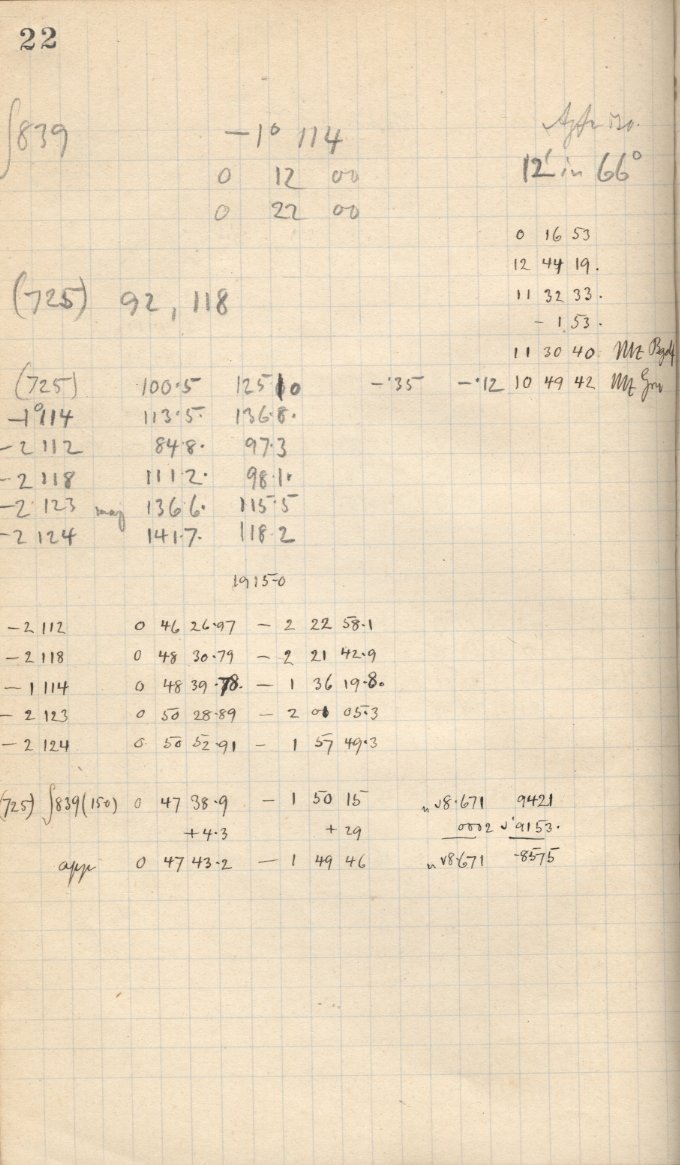 22
∫839 −1° 114
0 12 00
0 22 00
12' in 66°
0 16 53
12 44 19.
11 32 33.
− 1.53.
11 30 40 MZ
(725) 92, 118
(725) 100.5 125 10 −.35 −.12 10 49 42 MZ
−1°114 113.5. 136.8.
−2 112 84.8. 97.3
−2 118 111.2. 98.1.
−2 123 136.6. 115.5
−2 124 141.7. 118.2
1915.0
−2 112 0 46 26.97 − 2 22 58.1
−2 118 0 48 30.79 − 2 21 42.9
−1 114 0 48 39.78. − 1 36 19.8.
−2 123 0 50 28.89 − 2 01 05.3
−2 124 0 50 52.91 − 1 57 49.3
(725) ∫839(150) 0 47 38.9 − 1 50 15 n√8.671 9421
+4.3 +29 0002 √'9153.
app 0 47 43.2 − 1 49 46 n√8.671 .8575